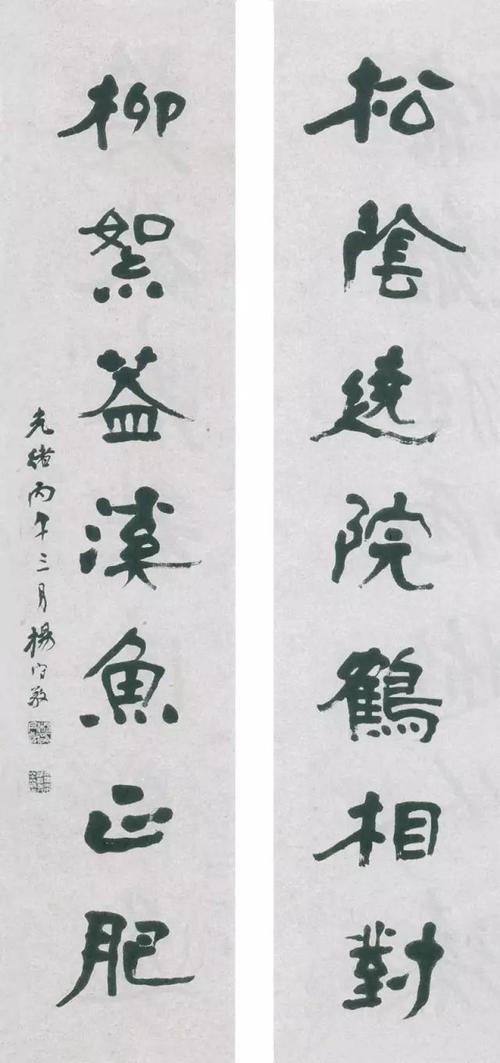 松陰遶院鶴相對
柳絮蓋溪魚正肥
光緒丙午三月楊守敬